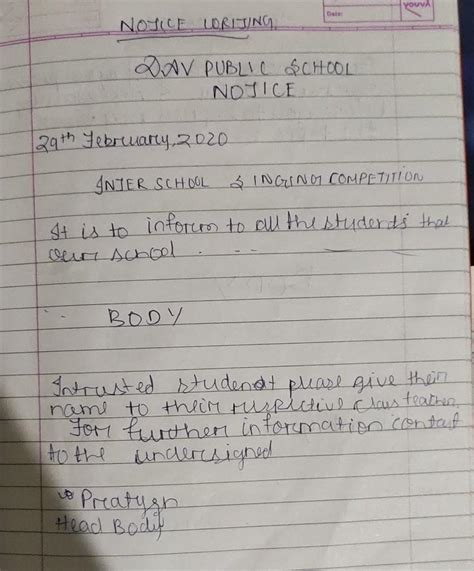 YOUVA
Date:
NOTICE WRITING
DAV PUBLIC SCHOOL
NOTICE
29th February, 2020
INTER SCHOOL SINGING COMPETITION
It is to inform to all the students that
our school . - - -
BODY
Intrusted student please give their
name to their respective class teacher,
For further information contact
to the undersigned
Head Body